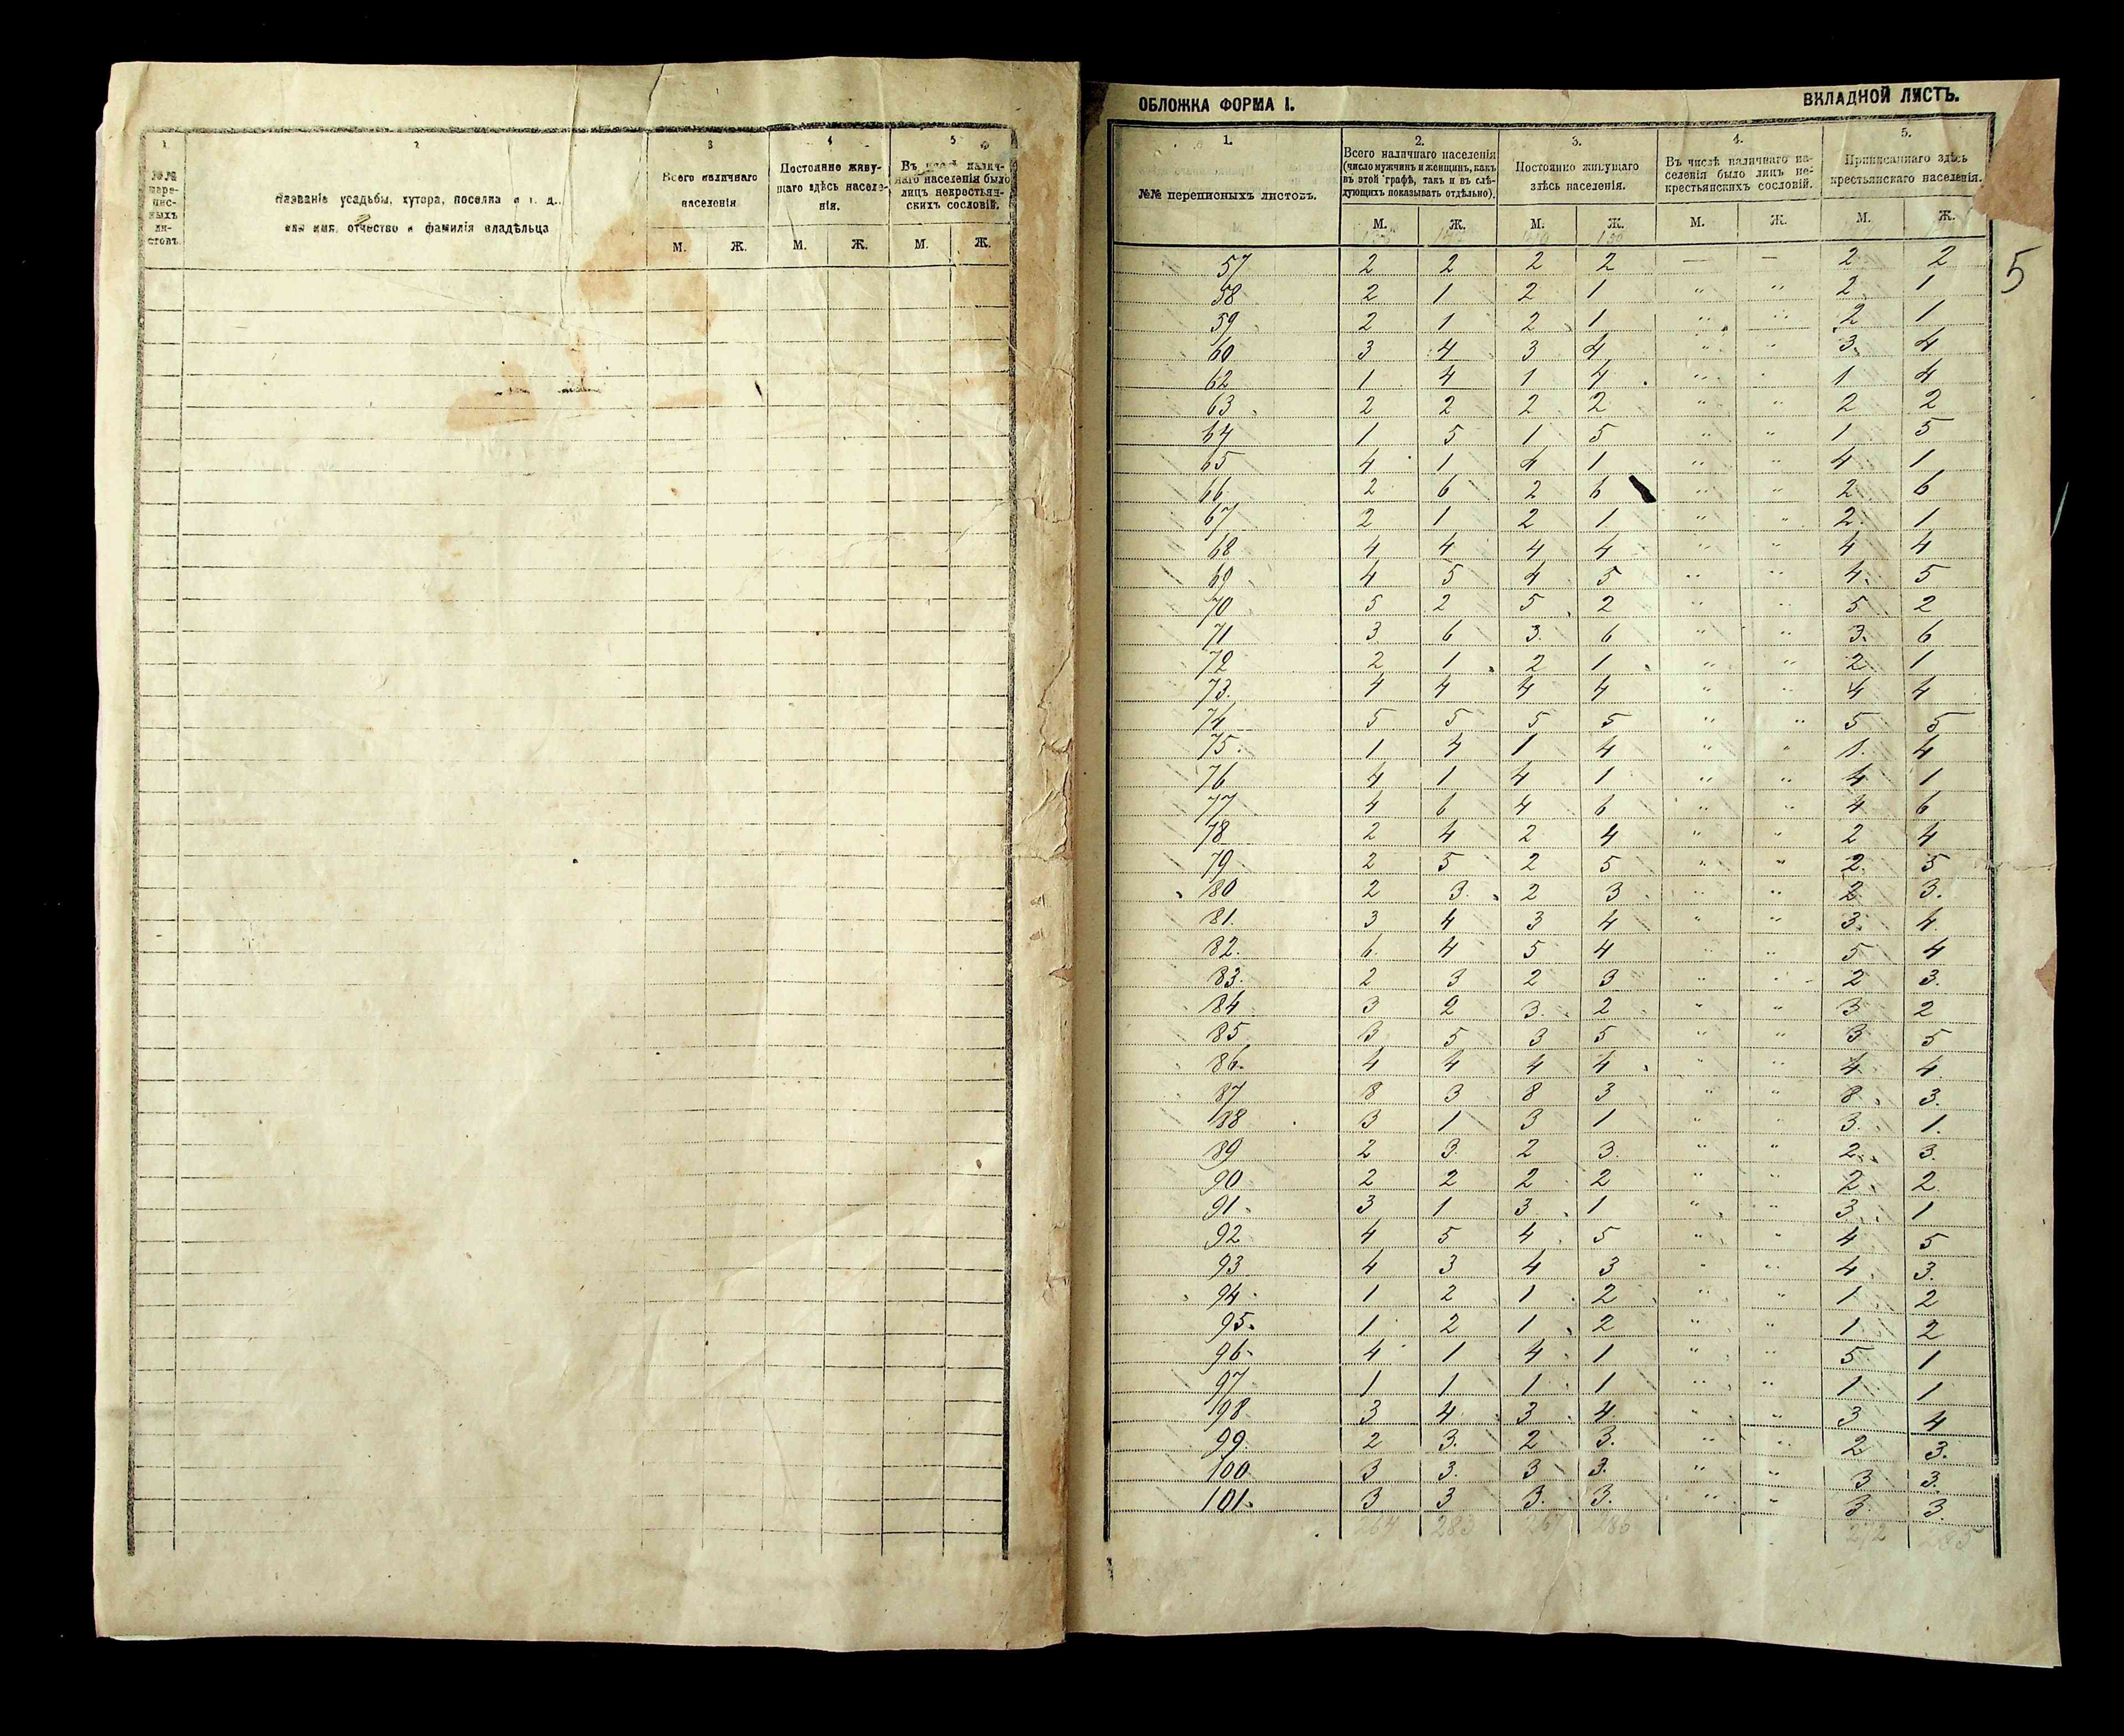 1 2 3 4 5
№№ пере-пис-ныхъ ли-стовъ.
Названіе усадьбы, хутора, поселка и т. д.,
или имя, отчество и фамилія владѣльца
Всего наличнаго
населенія
Постоянно живу-
щаго здѣсь населе-
нія.
Въ числѣ налич-
наго населенія было
лицъ некрестьян-
скихъ сословій.
М. Ж. М. Ж. М. Ж.
ОБЛОЖКА ФОРМА I. ВКЛАДНОЙ ЛИСТЪ.
1. 2. 3. 4. 5.
№№ переписныхъ листовъ.
Всего наличнаго населенія
(число мужчинъ и женщинъ, какъ
въ этой графѣ, такъ и въ слѣ-
дующихъ показывать отдѣльно).
Постоянно живущаго
здѣсь населенія.
Въ числѣ наличнаго на-
селенія было лицъ не-
крестьянскихъ сословій.
Приписаннаго здѣсь
крестьянскаго населенія.
М. Ж. М. Ж. М. Ж. М. Ж.
57 2 2 2 2 — — 2 2
5
58 2 1 2 1 " " 2 1
59 2 1 2 1 " " 2 1
60 3 4 3 4 " " 3 4
62 1 4 1 4 " " 1 4
63 2 2 2 2 " " 2 2
64 1 5 1 5 " " 1 5
65 4 1 4 1 " " 4 1
66 2 6 2 6 " " 2 6
67 2 1 2 1 " " 2 1
68 4 4 4 4 " " 4 4
69 4 5 4 5 " " 4 5
70 5 2 5 2 " " 5 2
71 3 6 3 6 " " 3 6
72 2 1 2 1 " " 2 1
73. 4 4 4 4 " " 4 4
74 5 5 5 5 " " 5 5
75. 1 4 1 4 " " 1 4
76 4 1 4 1 " " 4 1
77 4 6 4 6 " " 4 6
78 2 4 2 4 " " 2 4
79 2 5 2 5 " " 2 5
80 2 3. 2 3 " " 2 3.
81. 3 4 3 4 " " 3. 4
82. 6. 4 5 4 " " 5 4
83. 2 3 2 3 " " 2 3.
84 3 2 3. 2 " " 3 2
85 3 5 3 5 " " 3 5
86. 4 4 4 4 " " 4 4
87 8 3 8 3 " " 8 3.
88 3 1 3 1 " " 3. 1.
89 2 3. 2 3. " " 2 3.
90 2 2 2 2 " " 2 2
91. 3 1 3 1 " " 3 1
92 4 5 4 5 " " 4 5
93 4 3 4 3 " " 4 3.
94 1 2 1 2 " " 1 2
95. 1 2 1 2 " " 1 2
96. 4 1 4 1 " " 5 1
97 1 1 1 1 " " 1 1
98 3 4 3 4 " " 3 4
99 2 3. 2 3. " " 2 3.
100 3 3. 3 3. " " 3 3.
101. 3 3 3. 3. " " 3 3.
264 283 267 286 272 285